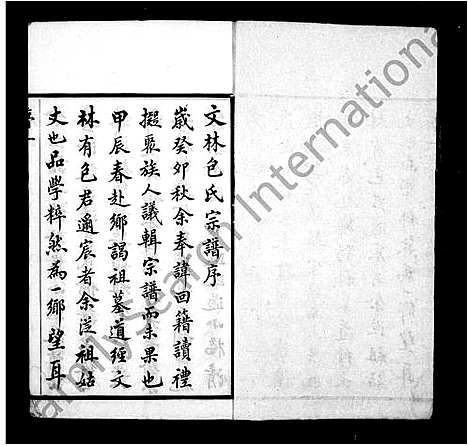 文林包氏宗譜序
歲癸卯秋余奉諱回籍讀禮
擬聚族人議輯宗譜而未果也
甲辰春赴鄉謁祖墓道經文
林有包君適宸者余從祖姑
丈也品學粹然為一鄉望耳
FamilySearch International